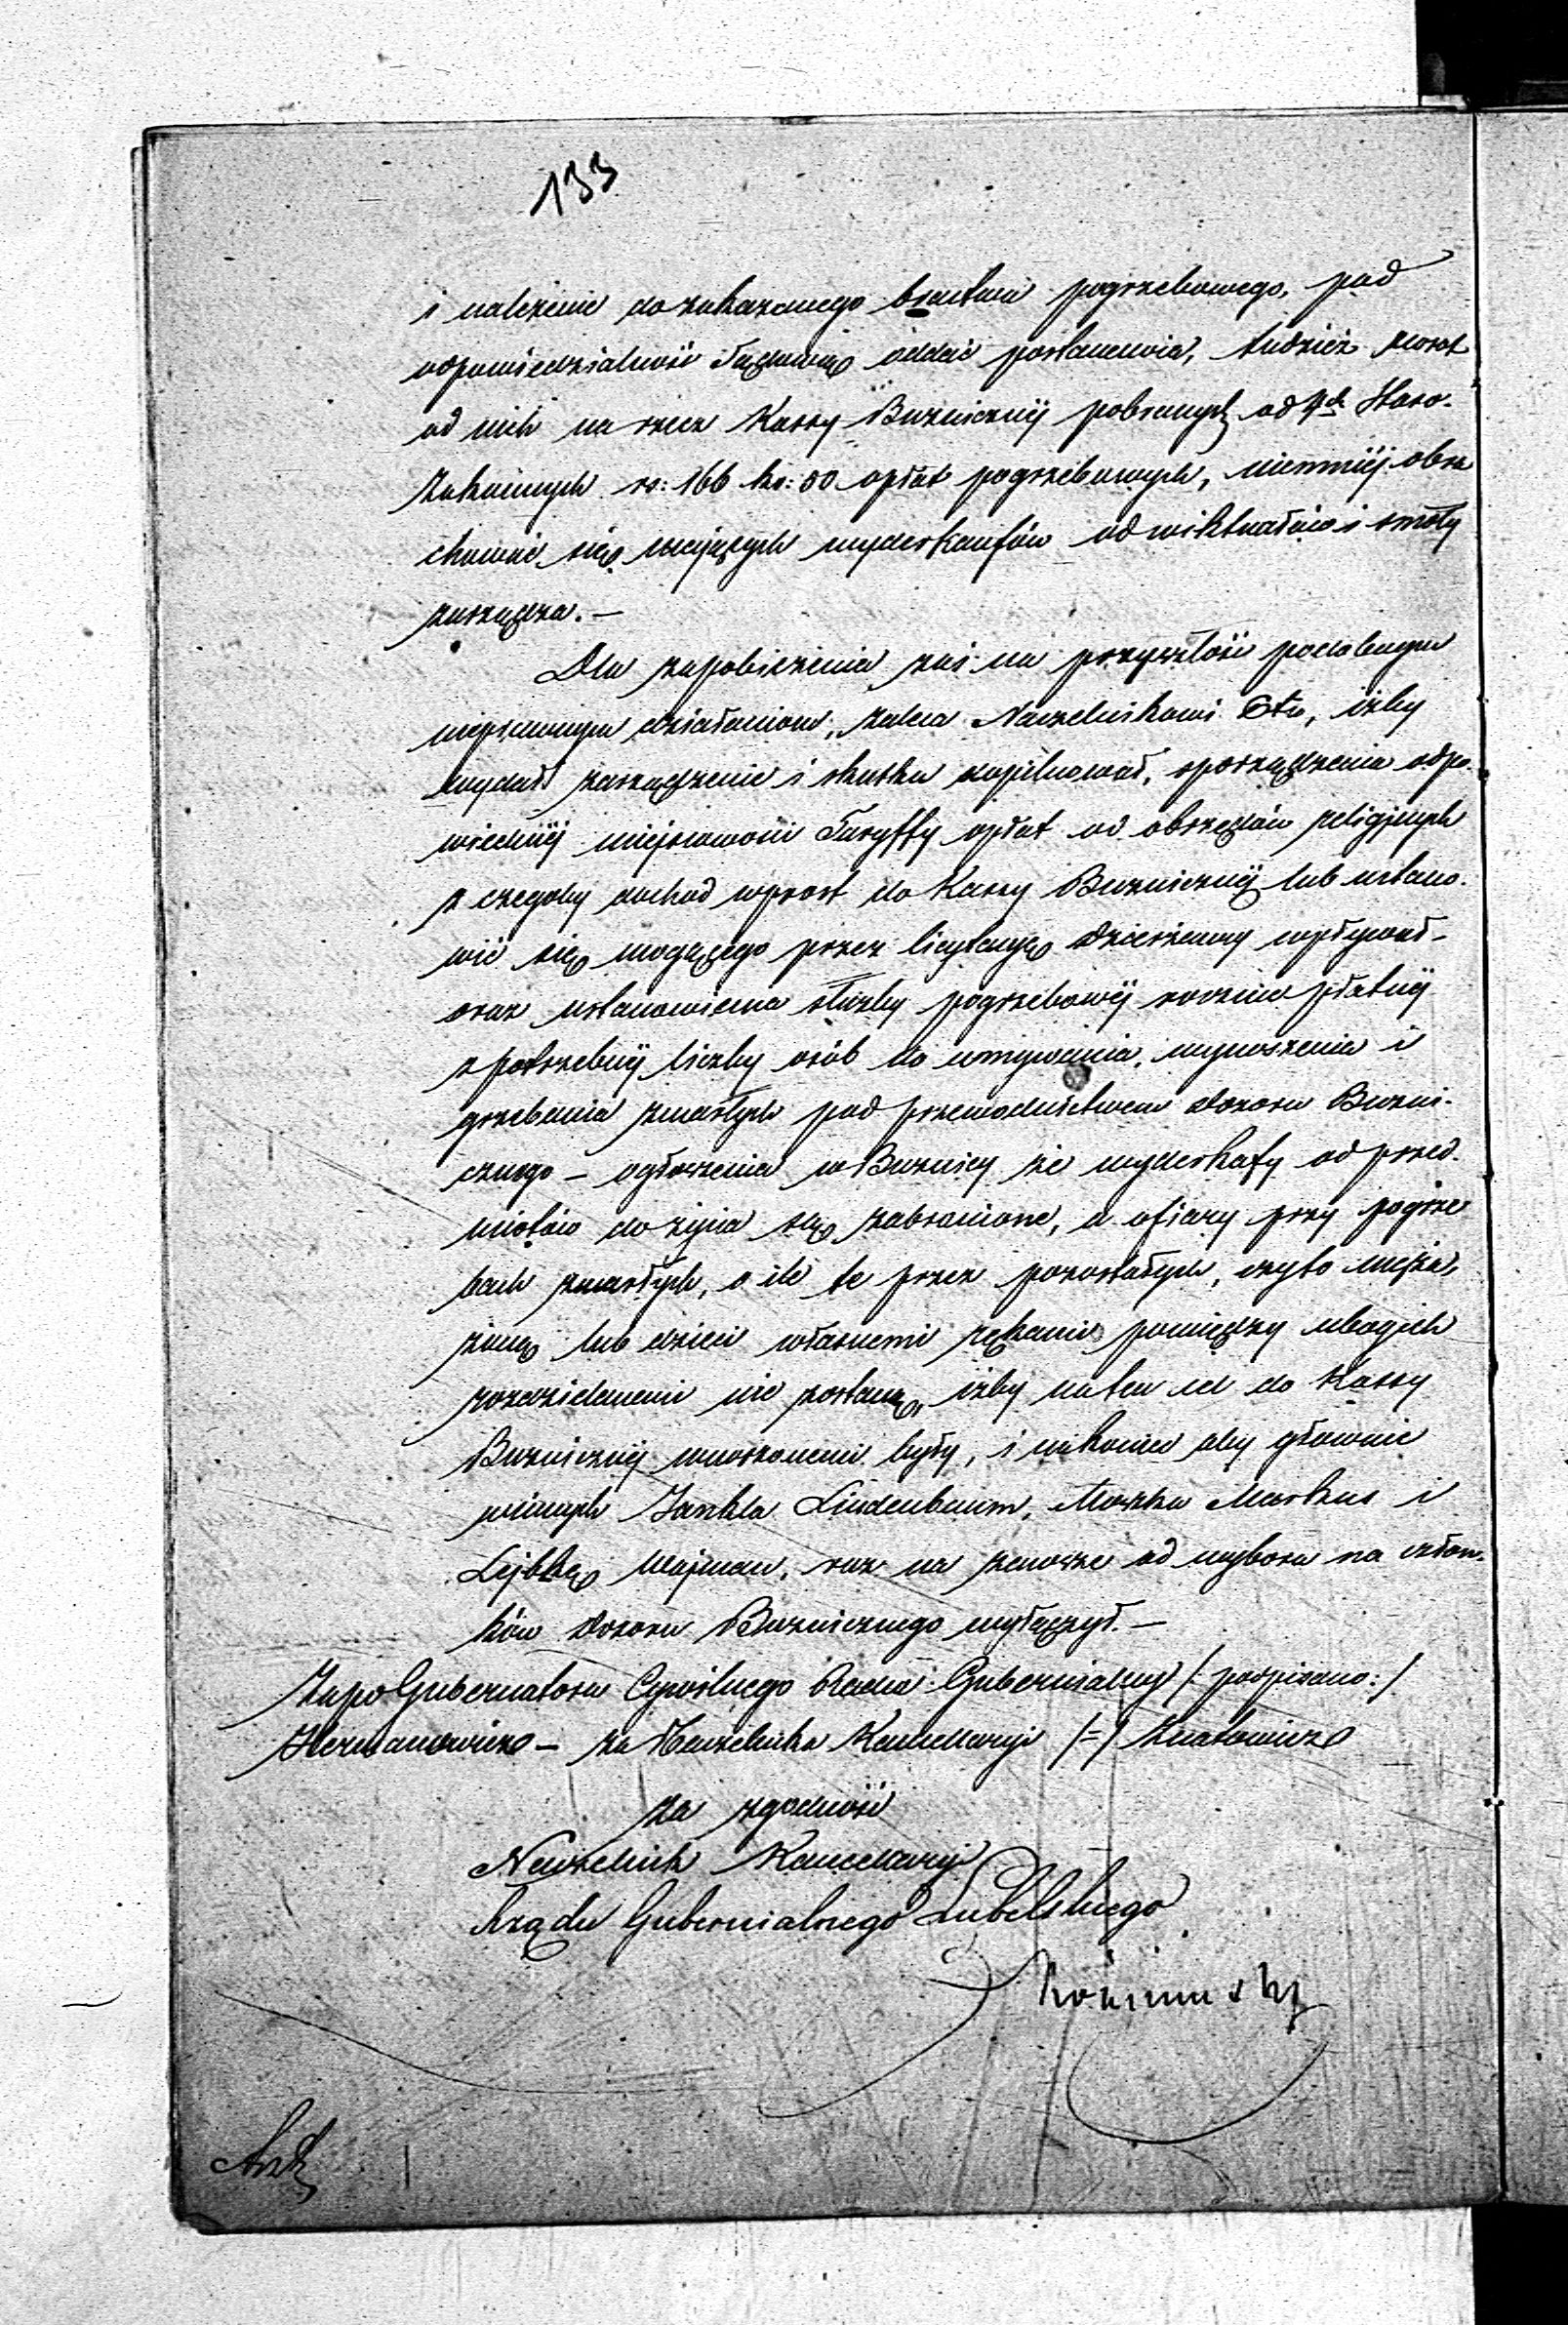 133
i należenie do zakazanego bractwa pogrzebowego, pod
odpowiedzialność Sądową oddać postanowia, tudzież zwrot
od nich na rzecz Kassy Bużniczéj pobranych od 4ch Staro-
zakonnych rs: 166 ko: 50 opłat pogrzebowych, niemniéj obra
chować się mających wyderkaufów od wiktuałów i smoły
zarządza. —
Dla zapobieżenia zaś na przyszłość podobnym
nieprawnym działaniom, zaleca Naczelnikowi Ptu, iżby
wydał zarządzenie i skutku dopilnował, sporządzenia odpo-
wiedniéj miejscowości Taryffy opłat od obrzędów religijnych
z czegoby dochód wprost do Kassy Bużniczéj lub ustano-
wić się mogącego przez licytacyę dzierżawcy wpływał —
oraz ustanowienia służby pogrzebowéj rocznie płatnéj
z potrzebnéj liczby osób do umywania, wynoszenia i
grzebania zmarłych pod przewodnictwem dozoru Bużni-
cznego — ogłoszenia w Bużnicy że wyderkafy od przed-
miotów do życia są zabronione, a ofiary przy pogrze
bach zmarłych, o ile te przez pozostałych, czyto męża,
żonę lub dzieci własnemi rękami pomiędzy ubogich
rozdzielanemi nie zostaną, iżby na ten cel do Kassy
Bużniczéj wnoszonemi były, i nakoniec aby głównie
winnych Jankla Lindenbaum, Moszka Markus i
Lejbkę Wajman, raz na zawsze od wyboru na człon-
ków dozoru Bużnicznego wyłączył. —
Za po Gubernatora Cywilnego Radca Gubernialny /: podpisano :/
Hermanowicz — za Naczelnika Kancellaryi /-/ Ignatowicz
za zgodność
Naczelnik Kancellaryi
Rządu Gubernialnego Lubelskiego